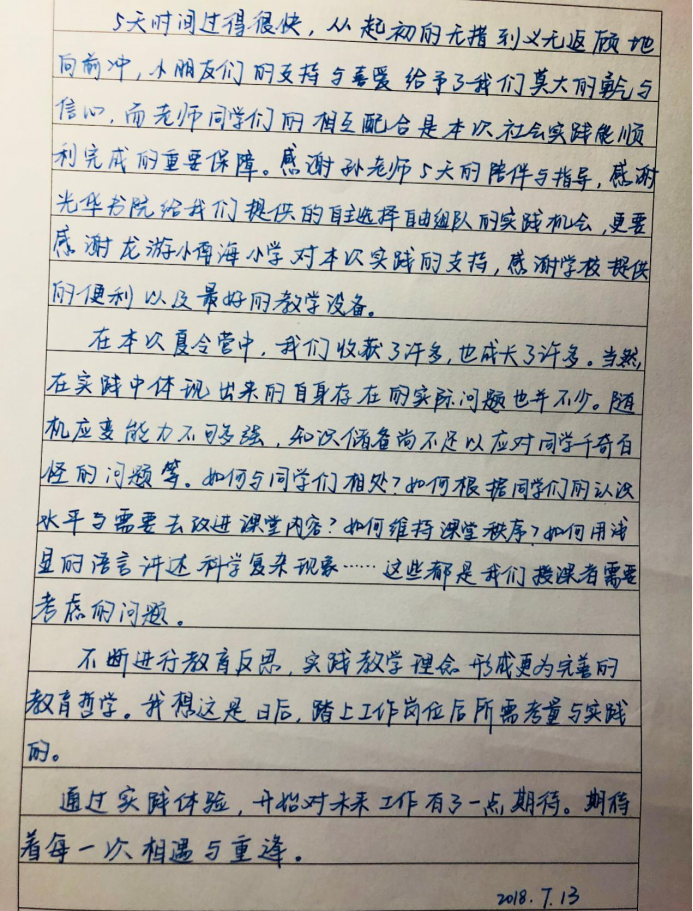 5天时间过得很快，从起初的无措到义无返顾地
向前冲，小朋友们的支持与喜爱给予了我们莫大的勇气与
信心，而老师同学们的相互配合是本次社会实践能顺
利完成的重要保障。感谢孙老师5天的陪伴与指导，感谢
光华书院给我们提供的自主选择自由组队的实践机会，更要
感谢龙游小南海小学对本次实践的支持，感谢学校提供
的便利以及最好的教学设备。
在本次夏令营中，我们收获了许多，也成长了许多。当然，
在实践中体现出来的自身存在的实际问题也并不少。随
机应变能力不够强，知识储备尚不足以应对同学千奇百
怪的问题等。如何与同学们相处？如何根据同学们的认识
水平与需要去改进课堂内容？如何维持课堂秩序？如何用浅
显的语言讲述科学复杂现象……这些都是我们授课者需要
考虑的问题。
不断进行教育反思，实践教学理念形成更为完善的
教育哲学。我想这是日后，踏上工作岗位后所需考量与实践
的。
通过实践体验，开始对未来工作有了一点期待。期待
着每一次相遇与重逢。
2018.7.13